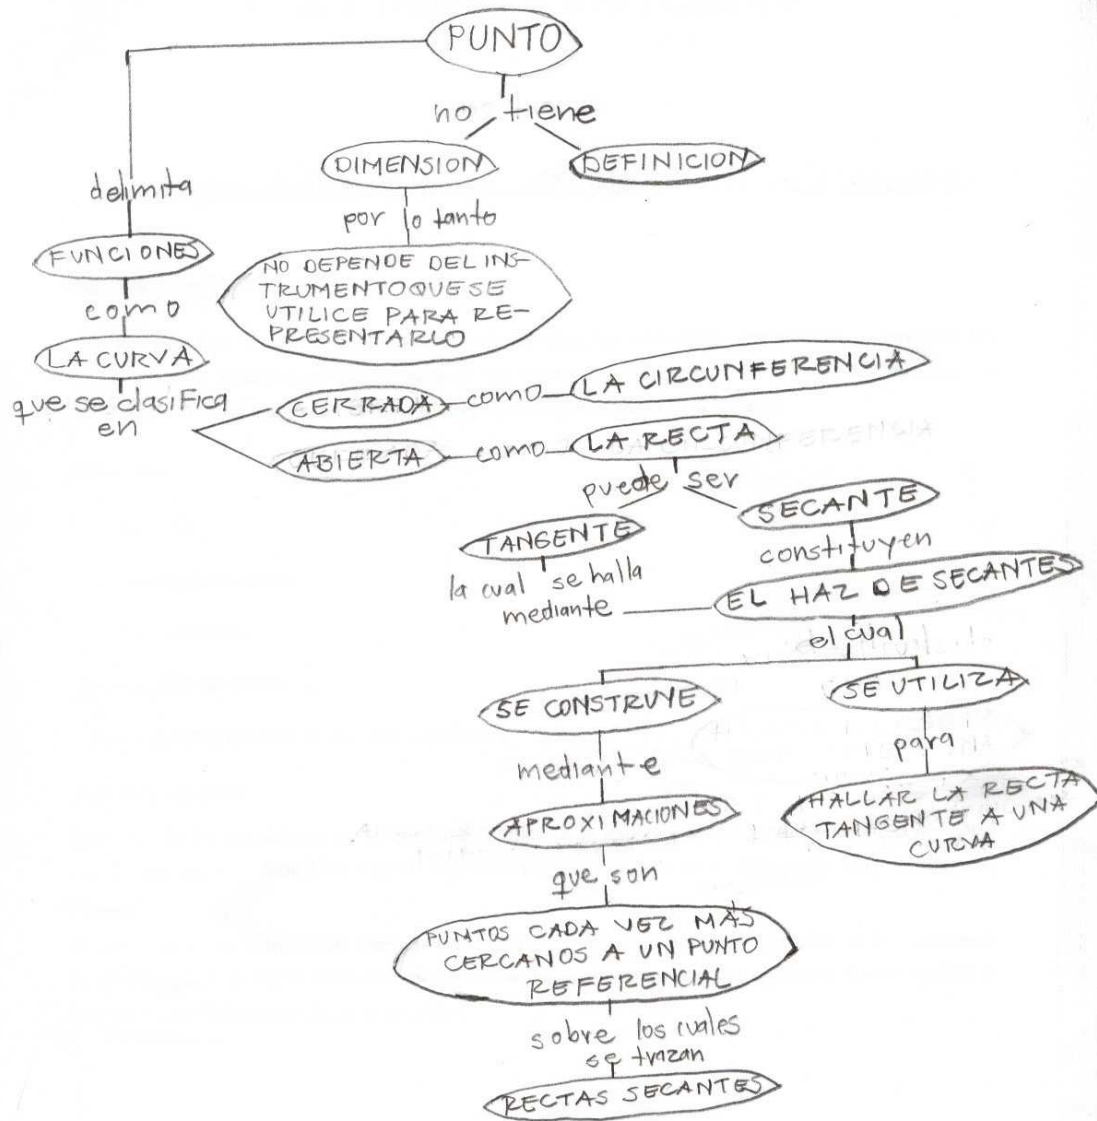 PUNTO
no tiene
DIMENSION
DEFINICION
delimita
por lo tanto
FUNCIONES
NO DEPENDE DEL INS-
TRUMENTO QUE SE
UTILICE PARA RE-
PRESENTARLO
como
LA CURVA
que se clasifica
en
CERRADA
como
LA CIRCUNFERENCIA
ABIERTA
como
LA RECTA
puede ser
TANGENTE
SECANTE
la cual se halla
mediante
constituyen
EL HAZ DE SECANTES
el cual
SE CONSTRUYE
SE UTILIZA
mediante
para
APROXIMACIONES
HALLAR LA RECTA
TANGENTE A UNA
CURVA
que son
PUNTOS CADA VEZ MÁS
CERCANOS A UN PUNTO
REFERENCIAL
sobre los cuales
se trazan
RECTAS SECANTES